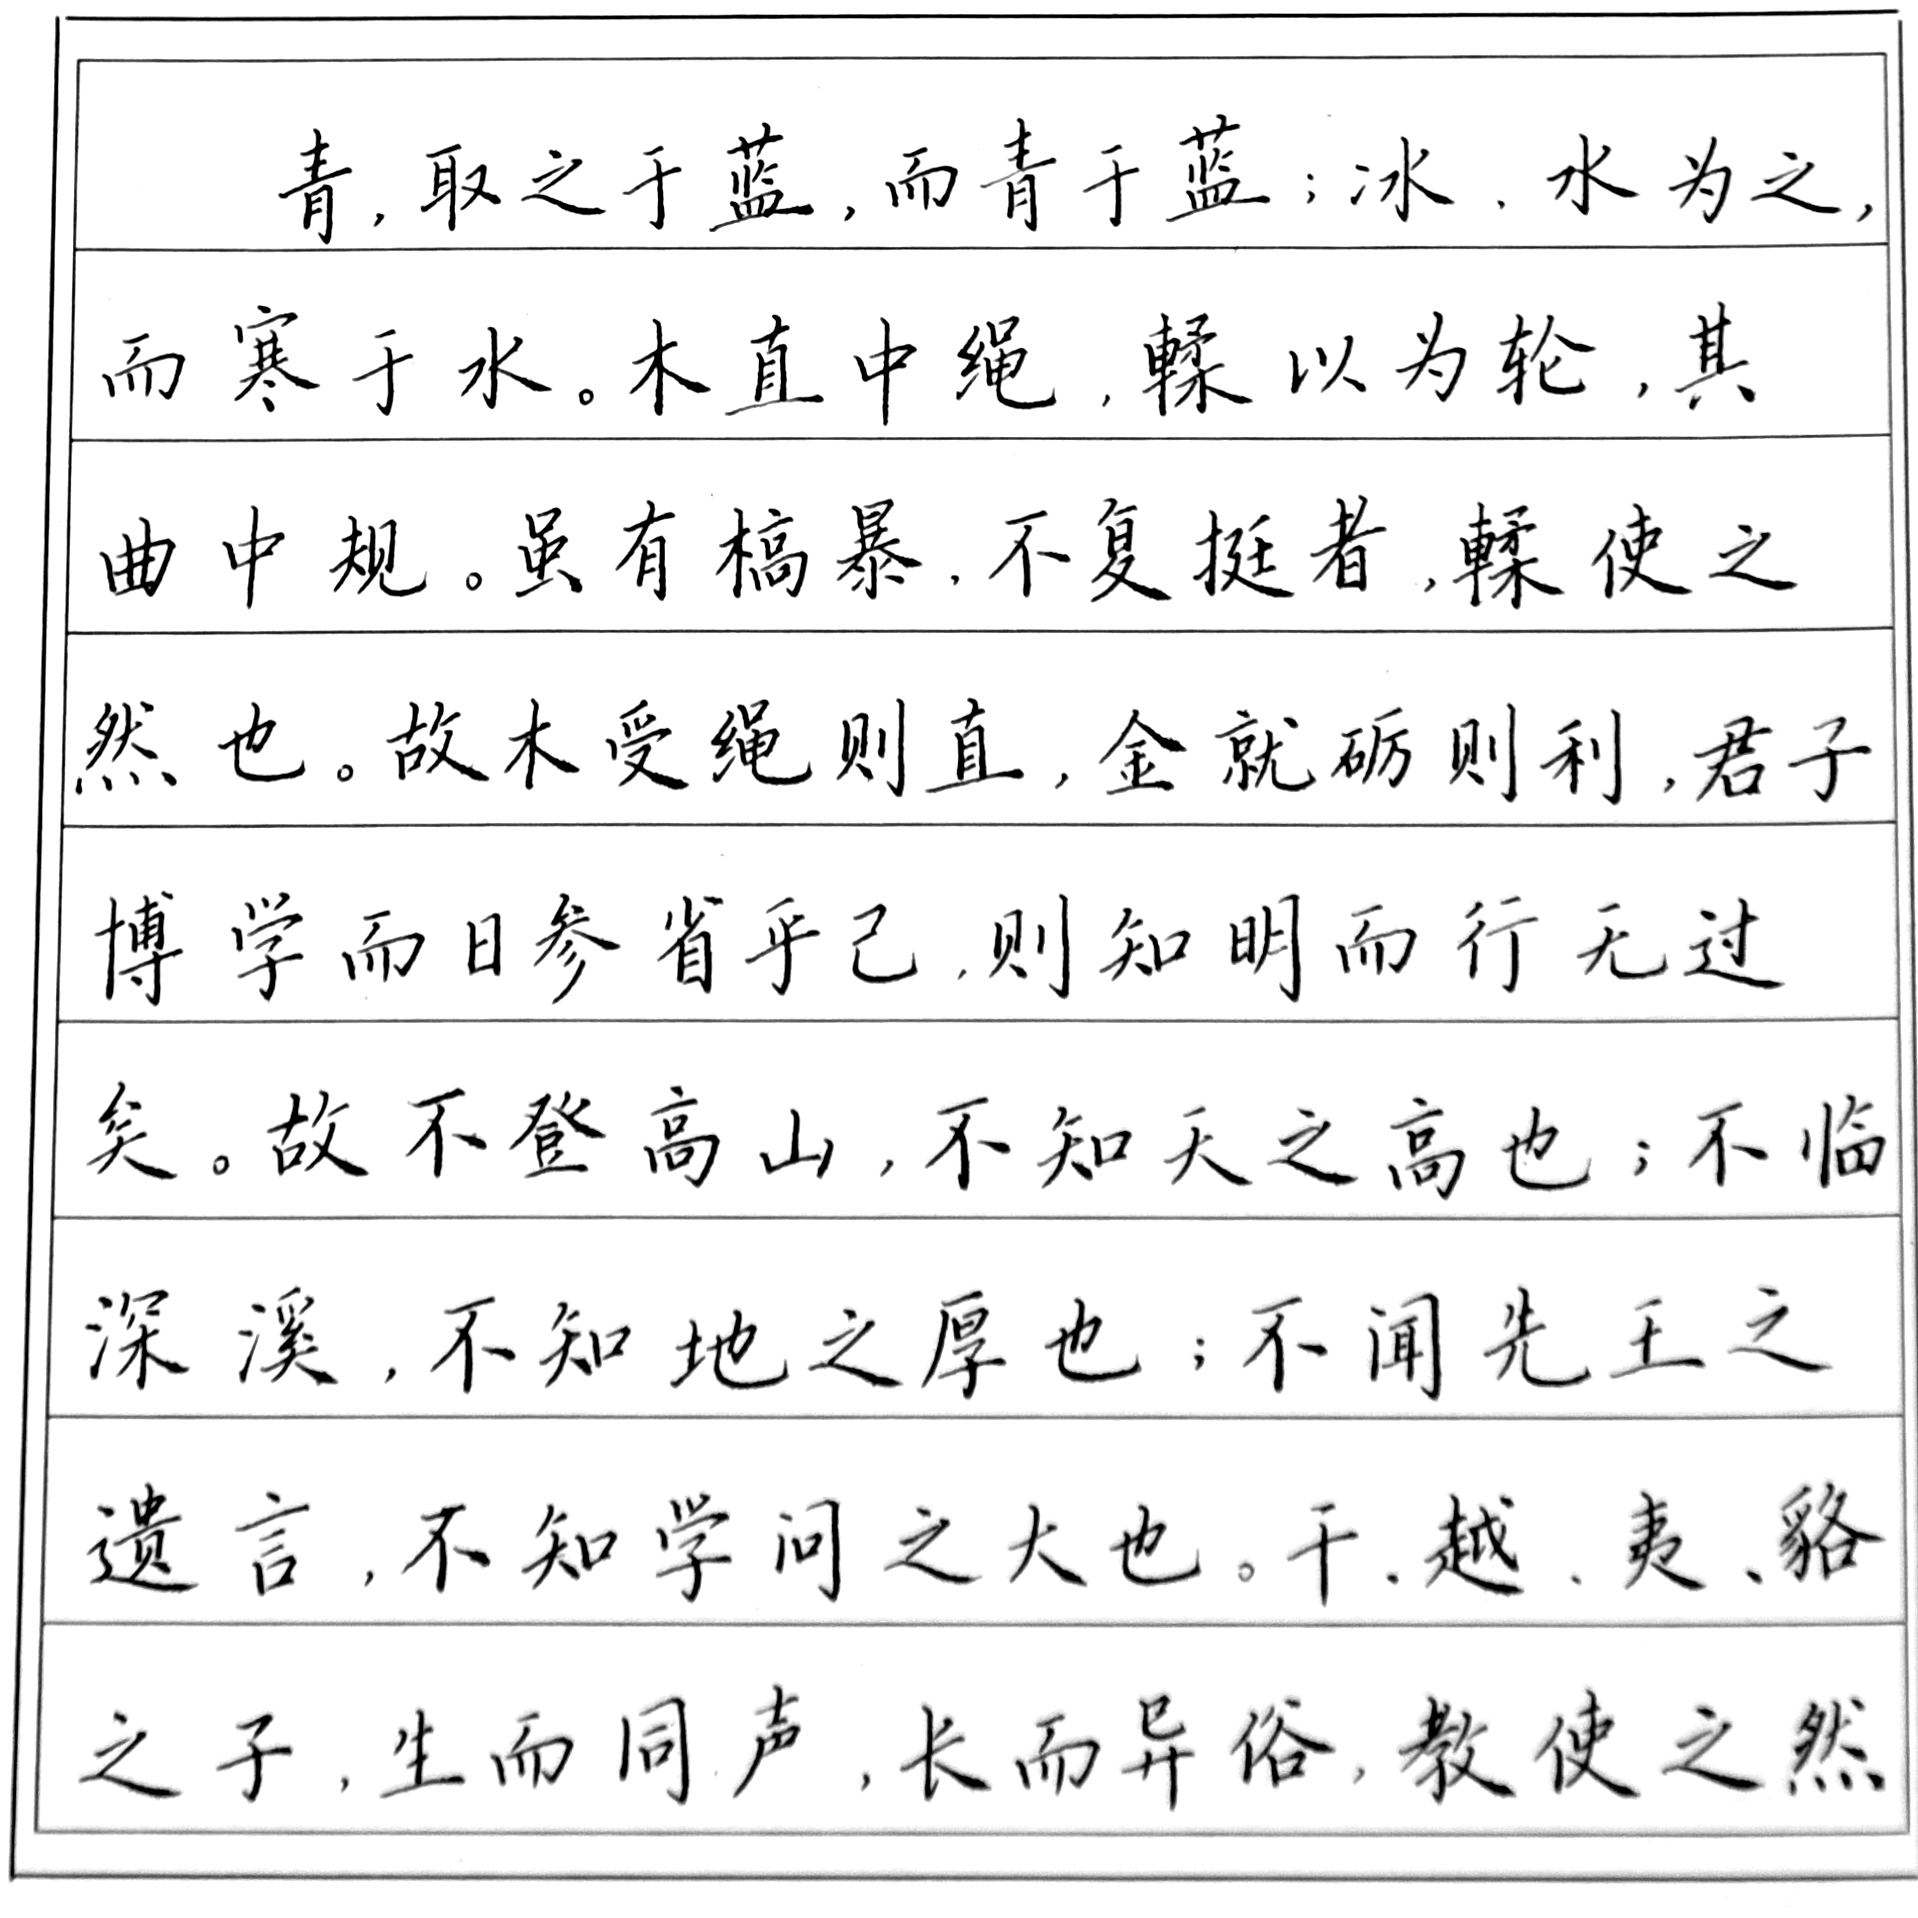 青，取之于蓝，而青于蓝；冰、水为之，
而寒于水。木直中绳，輮以为轮，其
曲中规。虽有槁暴，不复挺者，輮使之
然也。故木受绳则直，金就砺则利，君子
博学而日参省乎己，则知明而行无过
矣。故不登高山，不知天之高也；不临
深溪，不知地之厚也；不闻先王之
遗言，不知学问之大也。干、越、夷、貉
之子，生而同声，长而异俗，教使之然